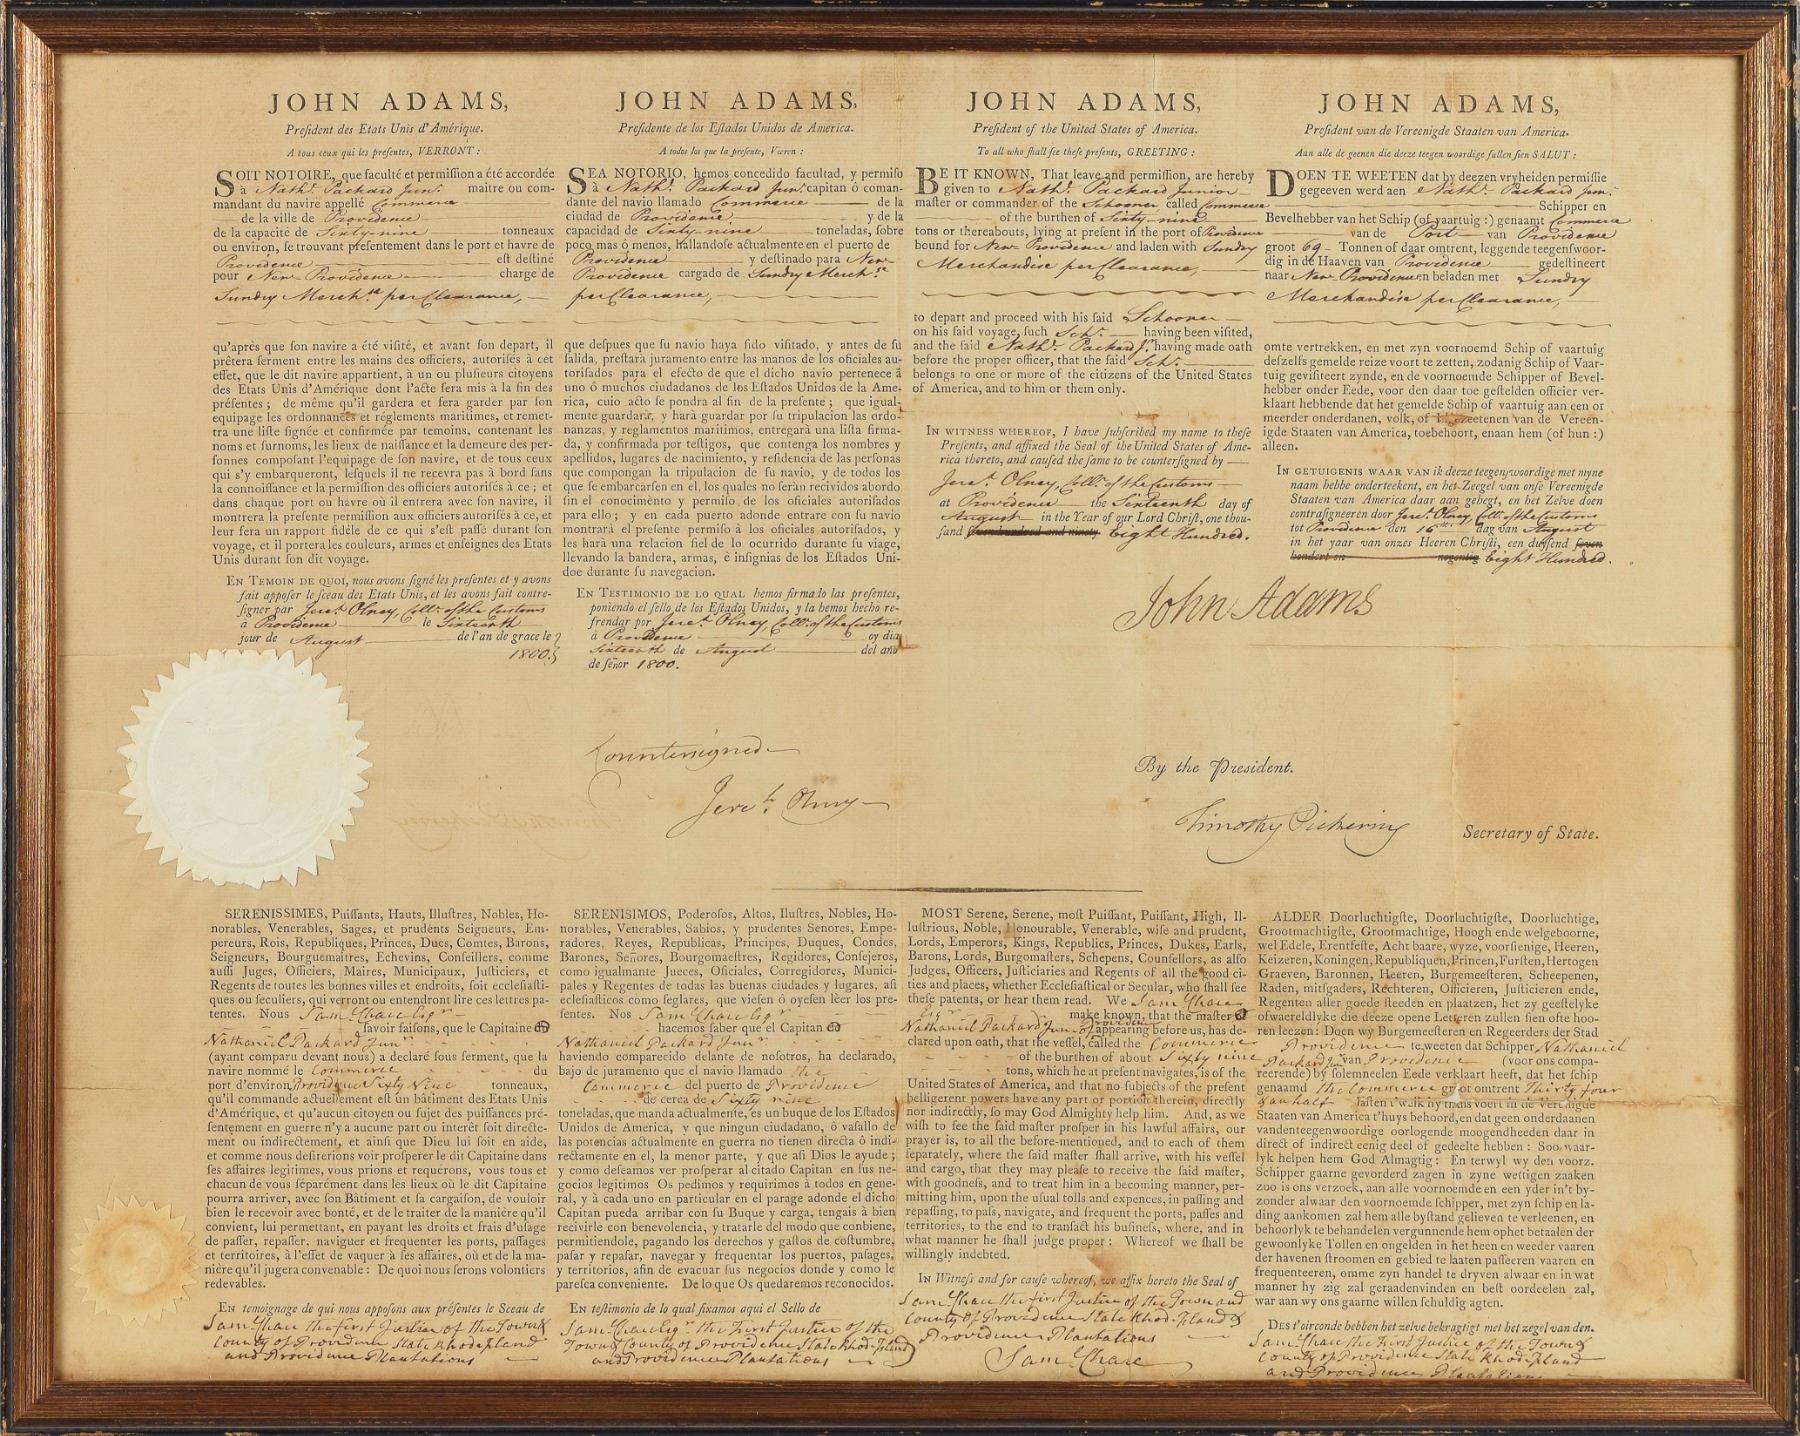 JOHN ADAMS,
President des Etats Unis d'Amérique.
A tous ceux qui les presentes, VERRONT:
SOIT NOTOIRE, que faculté et permission a été accordée
à Nathl. Packard Junr. maitre ou com-
mandant du navire appellé Commerce
de la ville de Providence
de la capacité de Sixty-nine tonneaux
ou environ, se trouvant presentement dans le port et havre de
Providence est destiné
pour New-Providence charge de
Sundry Merchse per Clearance,
qu'après que son navire a été visité, et avant son depart, il
prêtera serment entre les mains des officiers, autorisés à cet
effet, que le dit navire appartient, à un ou plusieurs citoyens
des Etats Unis d'Amérique dont l'acte sera mis à la fin des
présentes; de même qu'il gardera et fera garder par son
equipage les ordonnances et réglements maritimes, et remet-
tra une liste signée et confirmée par temoins, contenant les
noms et surnoms, les lieux de naissance et la demeure des per-
sonnes composant l'equipage de son navire, et de tous ceux
qui s'y embarqueront, lesquels il ne recevra pas à bord sans
la connoissance et la permission des officiers autorisés à ce; et
dans chaque port ou havre où il entrera avec son navire, il
montrera la presente permission aux officiers autorisés à ce, et
leur fera un rapport fidèle de ce qui s'est passé durant son
voyage, et il portera les couleurs, armes et enseignes des Etats
Unis durant son dit voyage.
EN TEMOIN DE QUOI, nous avons signé les presentes et y avons
fait apposer le sceau des Etats Unis, et les avons fait contre-
signer par Jereh. Olney, Collr. of the Customs
à Providence le Sixteenth
jour de August de l'an de grace le
1800.
JOHN ADAMS,
Presidente de los Estados Unidos de America.
A todos los que la presente, Vieren:
SEA NOTORIO, hemos concedido facultad, y permiso
à Nathl. Packard Junr. capitan ó coman-
dante del navio llamado Commerce de la
ciudad de Providence y de la
capacidad de Sixty-nine toneladas, sobre
poco mas ó menos, hallandose actualmente en el puerto de
Providence y destinado para New-
Providence cargado de Sundry Merchse
per Clearance,
que despues que su navio haya sido visitado, y antes de su
salida, prestará juramento entre las manos de los oficiales au-
torisados para el efecto de que el dicho navio pertenece à
uno ó muchos ciudadanos de los Estados Unidos de la Ame-
rica, cuio acto se pondra al fin de la presente; que igual-
mente guardará, y hará guardar por su tripulacion las ordo-
nanzas, y reglamentos maritimos, entregará una lista firma-
da, y confirmada por testigos, que contenga los nombres y
apellidos, lugares de nacimiento, y residencia de las personas
que compongan la tripulacion de su navio, y de todos los
que se embarcarsen en el, los quales no seràn recividos abordo
sin el conocimènto y permiso, de los oficiales autorisados
para ello; y en cada puerto adonde entrare con su navio
montrará el presente permiso à los oficiales autorisados, y
les hará una relacion fiel de lo ocurrido durante su viage,
llevando la bandera, armas, è insignias de los Estados Uni-
doe durante su navegacion.
EN TESTIMONIO DE LO QUAL hemos firmado las presentes,
poniendo el sello de los Estados Unidos, y la hemos hechò re-
frendar por Jereh. Olney, Collr. of the Customs
à Providence oy dia
Sixteenth de August del año
de señor 1800.
JOHN ADAMS,
President of the United States of America.
To all who shall see these presents, GREETING:
BE IT KNOWN, That leave and permission, are hereby
given to Nathl. Packard Junior
master or commander of the Schooner called Commerce
of the burthen of Sixty-nine
tons or thereabouts, lying at present in the port of Providence
bound for New-Providence and laden with Sundry
Merchandise per Clearance,
to depart and proceed with his said Schooner
on his said voyage, such Schr. having been visited,
and the said Nathl. Packard Jr. having made oath
before the proper officer, that the said Schr.
belongs to one or more of the citizens of the United States
of America, and to him or them only.
IN WITNESS WHEREOF, I have subscribed my name to these
Presents, and affixed the Seal of the United States of Ame-
rica thereto, and caused the same to be countersigned by
Jereh. Olney, Collr. of the Customs
at Providence the Sixteenth day of
August in the Year of our Lord Christ, one thou-
sand seven hundred and ninety Eight Hundred.
JOHN ADAMS,
President van de Vereenigde Staaten van America.
Aan alle de geenen die deeze teegen woordige sullen sien SALUT:
DOEN TE WEETEN dat by deezen vryheiden permissie
gegeeven werd aen Nathl. Packard Junr.
Schipper en
Bevelhebber van het Schip (of vaartuig:) genaamt Commerce
van de Port van Providence
groot 69 Tonnen of daar omtrent, leggende teegenswoor-
dig in de Haaven van Providence gedestineert
naar New-Providence en beladen met Sundry
Merchandise per Clearance,
omte vertrekken, en met zyn voornoemd Schip of vaartuig
deszelfs gemelde reize voort te zetten, zodanig Schip of Vaar-
tuig gevisiteert zynde, en de voornoemde Schipper of Bevel-
hebber onder Eede, voor den daar toe gestelden officier ver-
klaart hebbende dat het gemelde Schip of vaartuig aan een or
meerder onderdanen, volk, of Ingezeetenen van de Vereen-
igde Staaten van America, toebehoort, enaan hem (of hun:)
alleen.
IN GETUIGENIS WAAR VAN ik deeze teegenswoordige met myne
naam hebbe onderteekent, en het Zeegel van onse Vereenigde
Staaten van America daar aan gehegt, en het Zelve doen
contrasigneeren door Jereh. Olney, Collr. of the Customs
tot Providence den 16th dag van August
in het yaar van onzes Heeren Christi, een duysend seven
hondert en negentig Eight Hundred.
John Adams
Countersigned
Jereh. Olney
By the President.
Timothy Pickering
Secretary of State.
SERENISSIMES, Puissants, Hauts, Illustres, Nobles, Ho-
norables, Venerables, Sages, et prudents Seigneurs, Em-
pereurs, Rois, Republiques, Princes, Ducs, Comtes, Barons,
Seigneurs, Bourguemaitres, Echevins, Conseillers, comme
aussi Juges, Officiers, Maires, Municipaux, Justiciers, et
Regents de toutes les bonnes villes et endroits, soit ecclesiasti-
ques ou seculiers, qui verront ou entendront lire ces lettres pa-
tentes. Nous Saml. Chace Esqr
savoir faisons, que le Capitaine
Nathaniel Packard Junr
(ayant comparu devant nous) a declaré sous serment, que la
navire nommé le Commerce du
port d'environ Providence Sixty Nine tonneaux,
qu'il commande actuellement est un bâtiment des Etats Unis
d'Amérique, et qu'aucun citoyen ou sujet des puissances pré-
sentement en guerre n'y a aucune part ou interêt soit directe-
ment ou indirectement, et ainsi que Dieu lui soit en aide,
et comme nous desirerions voir prosperer le dit Capitaine dans
ses affaires legitimes, vous prions et requérons, vous tous et
chacun de vous séparément dans les lieux où le dit Capitaine
pourra arriver, avec son Bâtiment et sa cargaison, de vouloir
bien le recevoir avec bonté, et de le traiter de la manière qu'il
convient, lui permettant, en payant les droits et frais d'usage
de passer, repasser, naviguer et frequenter les ports, passages
et territoires, à l'effet de vaquer à ses affaires, où et de la ma-
nière qu'il jugera convenable: De quoi nous serons volontiers
redevables.
EN temoignage de qui nous apposons aux présentes le Sceau de
Saml. Chace the first Justice of the Town &
County of Providence State Rhode Island
and Providence Plantations
SERENISIMOS, Poderosos, Altos, Ilustres, Nobles, Ho-
norables, Venerables, Sabios, y prudentes Senores, Empe-
radores, Reyes, Republicas, Principes, Duques, Condes,
Barones, Señores, Bourgomaestres, Regidores, Consejeros,
como igualmante Jueces, Oficiales, Corregidores, Munici-
pales y Regentes de todas las buenas ciudades y lugares, asi
eclesiasticos como seglares, que viesen ó oyesen lèer los pre-
sentes. Nos Saml. Chace Esqr
hacemos saber que el Capitan
Nathaniel Packard Junr
haviendo comparecido delante de nosotros, ha declarado,
bajo de juramento que el navio llamado the
Commerce del puerto de Providence
de cerca de Sixty nine
toneladas, que manda actualmente, es un buque de los Estados
Unidos de America, y que ningun ciudadano, ó vasallo de
las potencias actualmente en guerra no tienen directa ó indi-
rectamente en el, la menor parte, y que asi Dios le ayude;
y como deseamos ver prosperar al citado Capitan en sus ne-
gocios legitimos Os pedimos y requirimos à todos en gene-
ral, y à cada uno en particular en el parage adonde el dicho
Capitan pueda arribar con su Buque y carga, tengais à bien
recivirle con benevolencia, y tratarle del modo que conbiene,
permitiendole, pagando los derechos y gastos de costumbre,
pasar y repasar, navegar y frequentar los puertos, pasages,
y territorios, afin de evacuar sus negocios donde y como le
paresca conveniente. De lo que Os quedaremos reconocidos.
EN testimonio de lo qual fixamos aqui el Sello de
Saml. Chace Esqr. the First Justice of the
Town & County of Providence State Rhode Island
and Providence Plantations
MOST Serene, Serene, most Puissant, Puissant, High, Il-
lustrious, Noble, Honourable, Venerable, wise and prudent,
Lords, Emperors, Kings, Republics, Princes, Dukes, Earls,
Barons, Lords, Burgomasters, Schepens, Counsellors, as also
Judges, Officers, Justiciaries and Regents of all the good ci-
ties and places, whether Ecclesiastical or Secular, who shall see
these patents, or hear them read. We Saml. Chace
Esqr make known, that the master of
Nathaniel Packard Junr. of Providence appearing before us, has de-
clared upon oath, that the vessel, called the Commerce
of the burthen of about Sixty nine
tons, which he at present navigates, is of the
United States of America, and that no subjects of the present
belligerent powers have any part or portion therein, directly
nor indirectly, so may God Almighty help him. And, as we
wish to see the said master prosper in his lawful affairs, our
prayer is, to all the before-mentioned, and to each of them
separately, where the said master shall arrive, with his vessel
and cargo, that they may please to receive the said master,
with goodness, and to treat him in a becoming manner, per-
mitting him, upon the usual tolls and expences, in passing and
repassing, to pass, navigate, and frequent the ports, passes and
territories, to the end to transact his business, where, and in
what manner he shall judge proper: Whereof we shall be
willingly indebted.
IN Witness and for cause whereof, we affix hereto the Seal of
Saml. Chace the first Justice of the Town and
County of Providence State Rhode Island &
Providence Plantations
Saml. Chace
ALDER Doorluchtigste, Doorluchtigste, Doorluchtige,
Grootmachtigste, Grootmachtige, Hoogh ende welgeboorne,
wel Edele, Erentfeste, Acht baare, wyze, voorsienige, Heeren,
Keizeren, Koningen, Republiquen, Princen, Fursten, Hertogen
Graeven, Baronnen, Heeren, Burgemeesteren, Scheepenen,
Raden, mitsgaders, Rechteren, Officieren, Justicieren ende,
Regenten aller goede steeden en plaatzen, het zy geestelyke
ofwaereldlyke die deeze opene Letteren zullen sien ofte hoo-
ren leezen: Doen wy Burgemeesteren en Regeerders der Stad
Providence te weeten dat Schipper Nathaniel
Packard Junr van Providence (voor ons compa-
reerende) by solemneelen Eede verklaart heeft, dat het schip
genaamd the Commerce groot omtrent Thirty four
& an half lasten t'welk hy thans voert in de Verenigde
Staaten van America t'huys behoord, en dat geene onderdaanen
vandenteegenwoordige oorlogende moogendheeden daar in
direct of indirect eenig deel of gedeelte hebben: Soo waar-
lyk helpen hem God Almagtig: En terwyl wy den voorz.
Schipper gaarne gevorderd zagen in zyne wettigen zaaken
zoo is ons verzoek, aan alle voornoemde en een yder in't by-
zonder alwaar den voornoemde schipper, met zyn schip en la-
ding aankomen zal hem alle bystand gelieven te verleenen, en
behoorlyk te behandelen vergunnende hem ophet betaalen der
gewoonlyke Tollen en ongelden in het heen en weeder vaaren
der havenen stroomen en gebied te laaten passeeren vaaren en
frequenteeren, omme zyn handel te dryven alwaar en in wat
manner hy zig zal geraadenvinden en best oordeelen zal,
war aan wy ons gaarne willen schuldig agten.
DES t'oirconde hebben het zelve bekragtigt met het zegel van den.
Saml. Chace the First Justice of the Town &
County of Providence State Rhode Island
and Providence Plantations